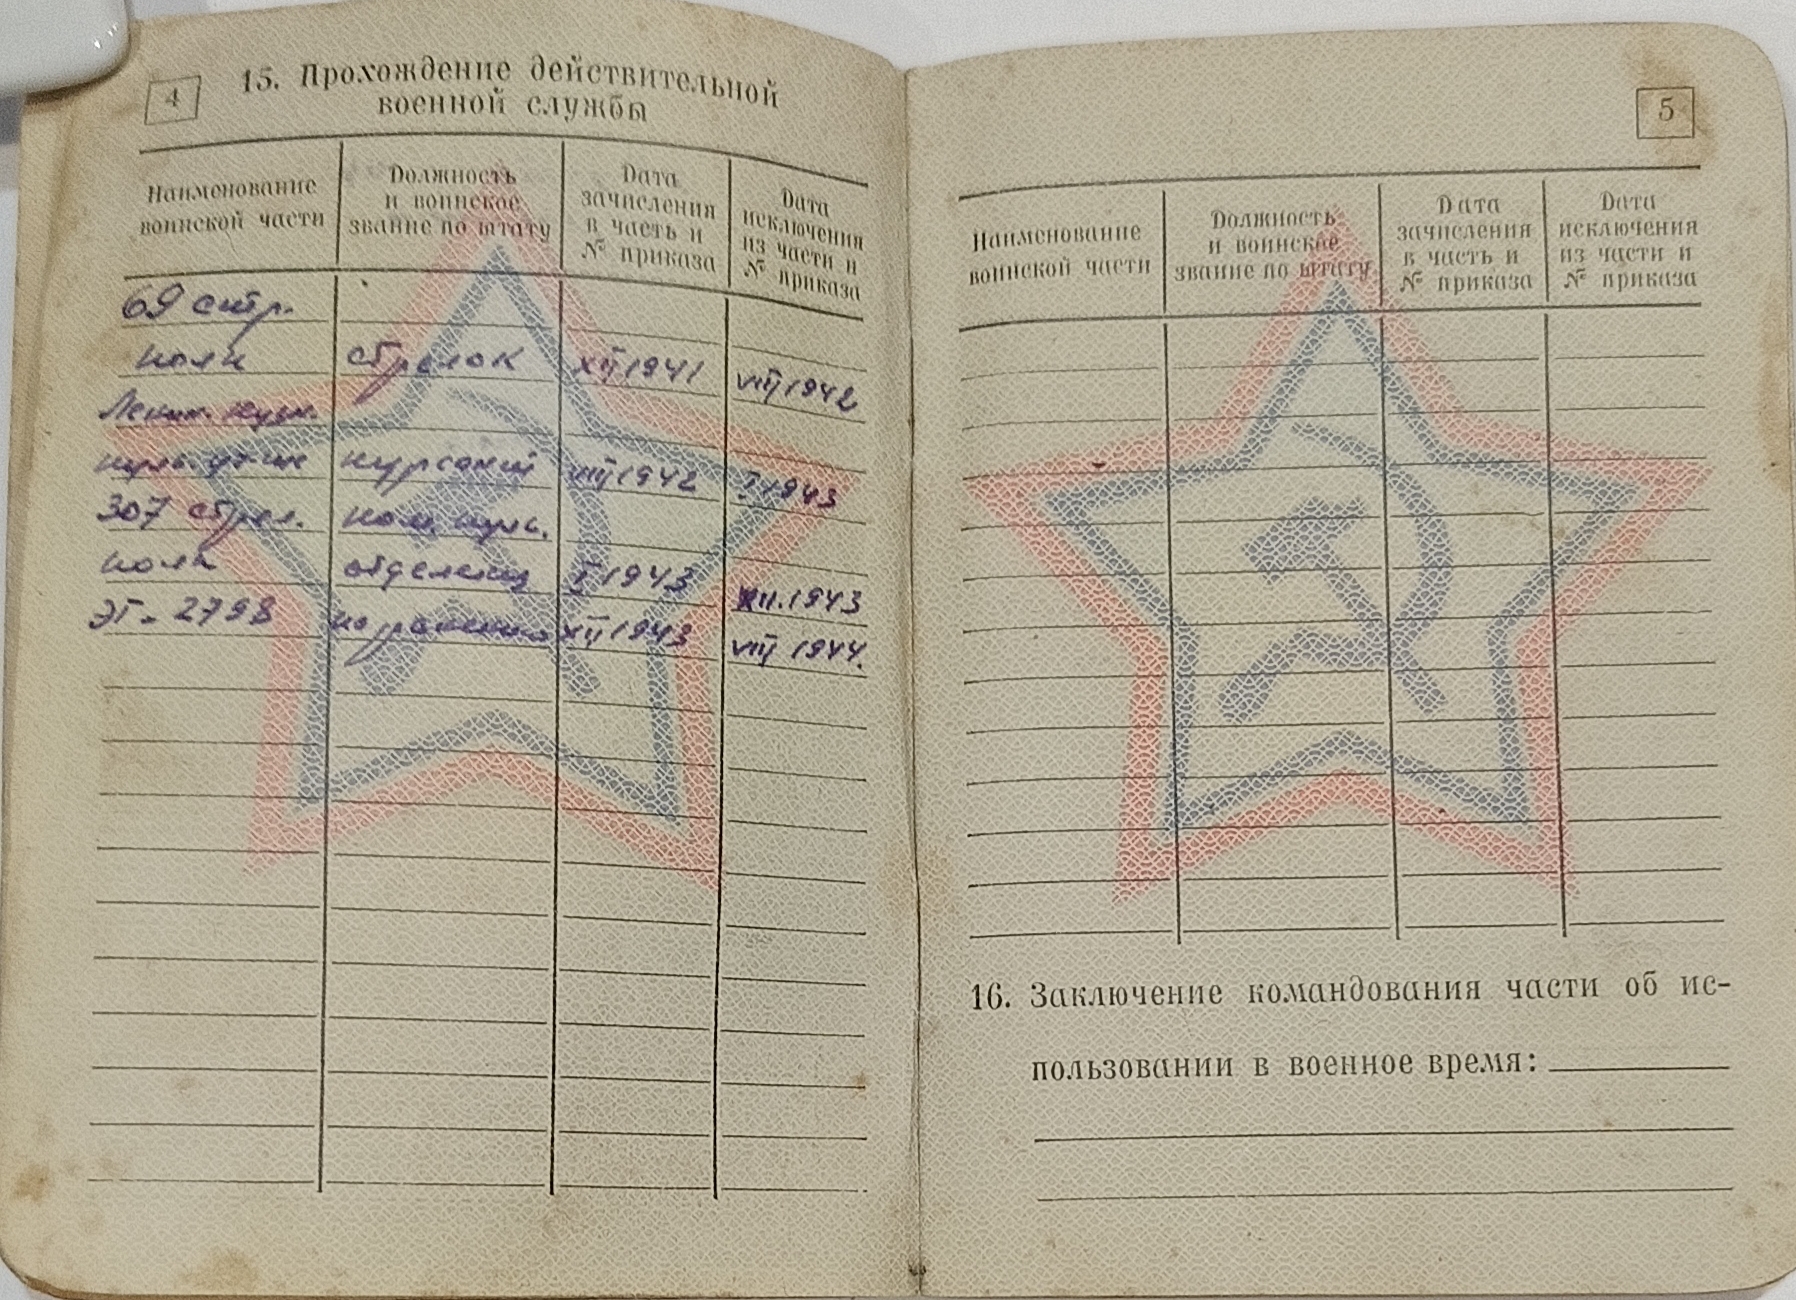 4
15. Прохождение действительной
военной службы
Наименование
воинской части
Должность
и воинское
звание по штату
Дата
зачисления
в часть и
№ приказа
Дата
исключения
из части и
№ приказа
69 стр.
полк стрелок XII 1941 VIII 1942
Ленин.
курсант VIII 1942 I 1943
307 стрел. ком. пульк.
полк отделения I 1943 XII.1943
ЭГ-2798 по ранению XII 1943 VIII 1944.
5
Наименование
воинской части
Должность
и воинское
звание по штату
Дата
зачисления
в часть и
№ приказа
Дата
исключения
из части и
№ приказа
16. Заключение командования части об ис-
пользовании в военное время: